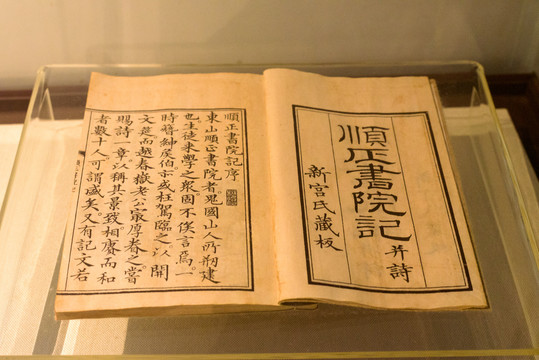 順正書院記
并詩
新宮氏藏板
順正書院記序
東山順正書院者鬼國山人所剏建
也生徒來學之衆固不俟言焉一
時簪紳侯伯亦或枉駕臨之以開
文筵而越春嶽老公最厚眷之嘗
賜詩一章以稱其景致相賡而和
者數十人可謂盛矣又有記文若